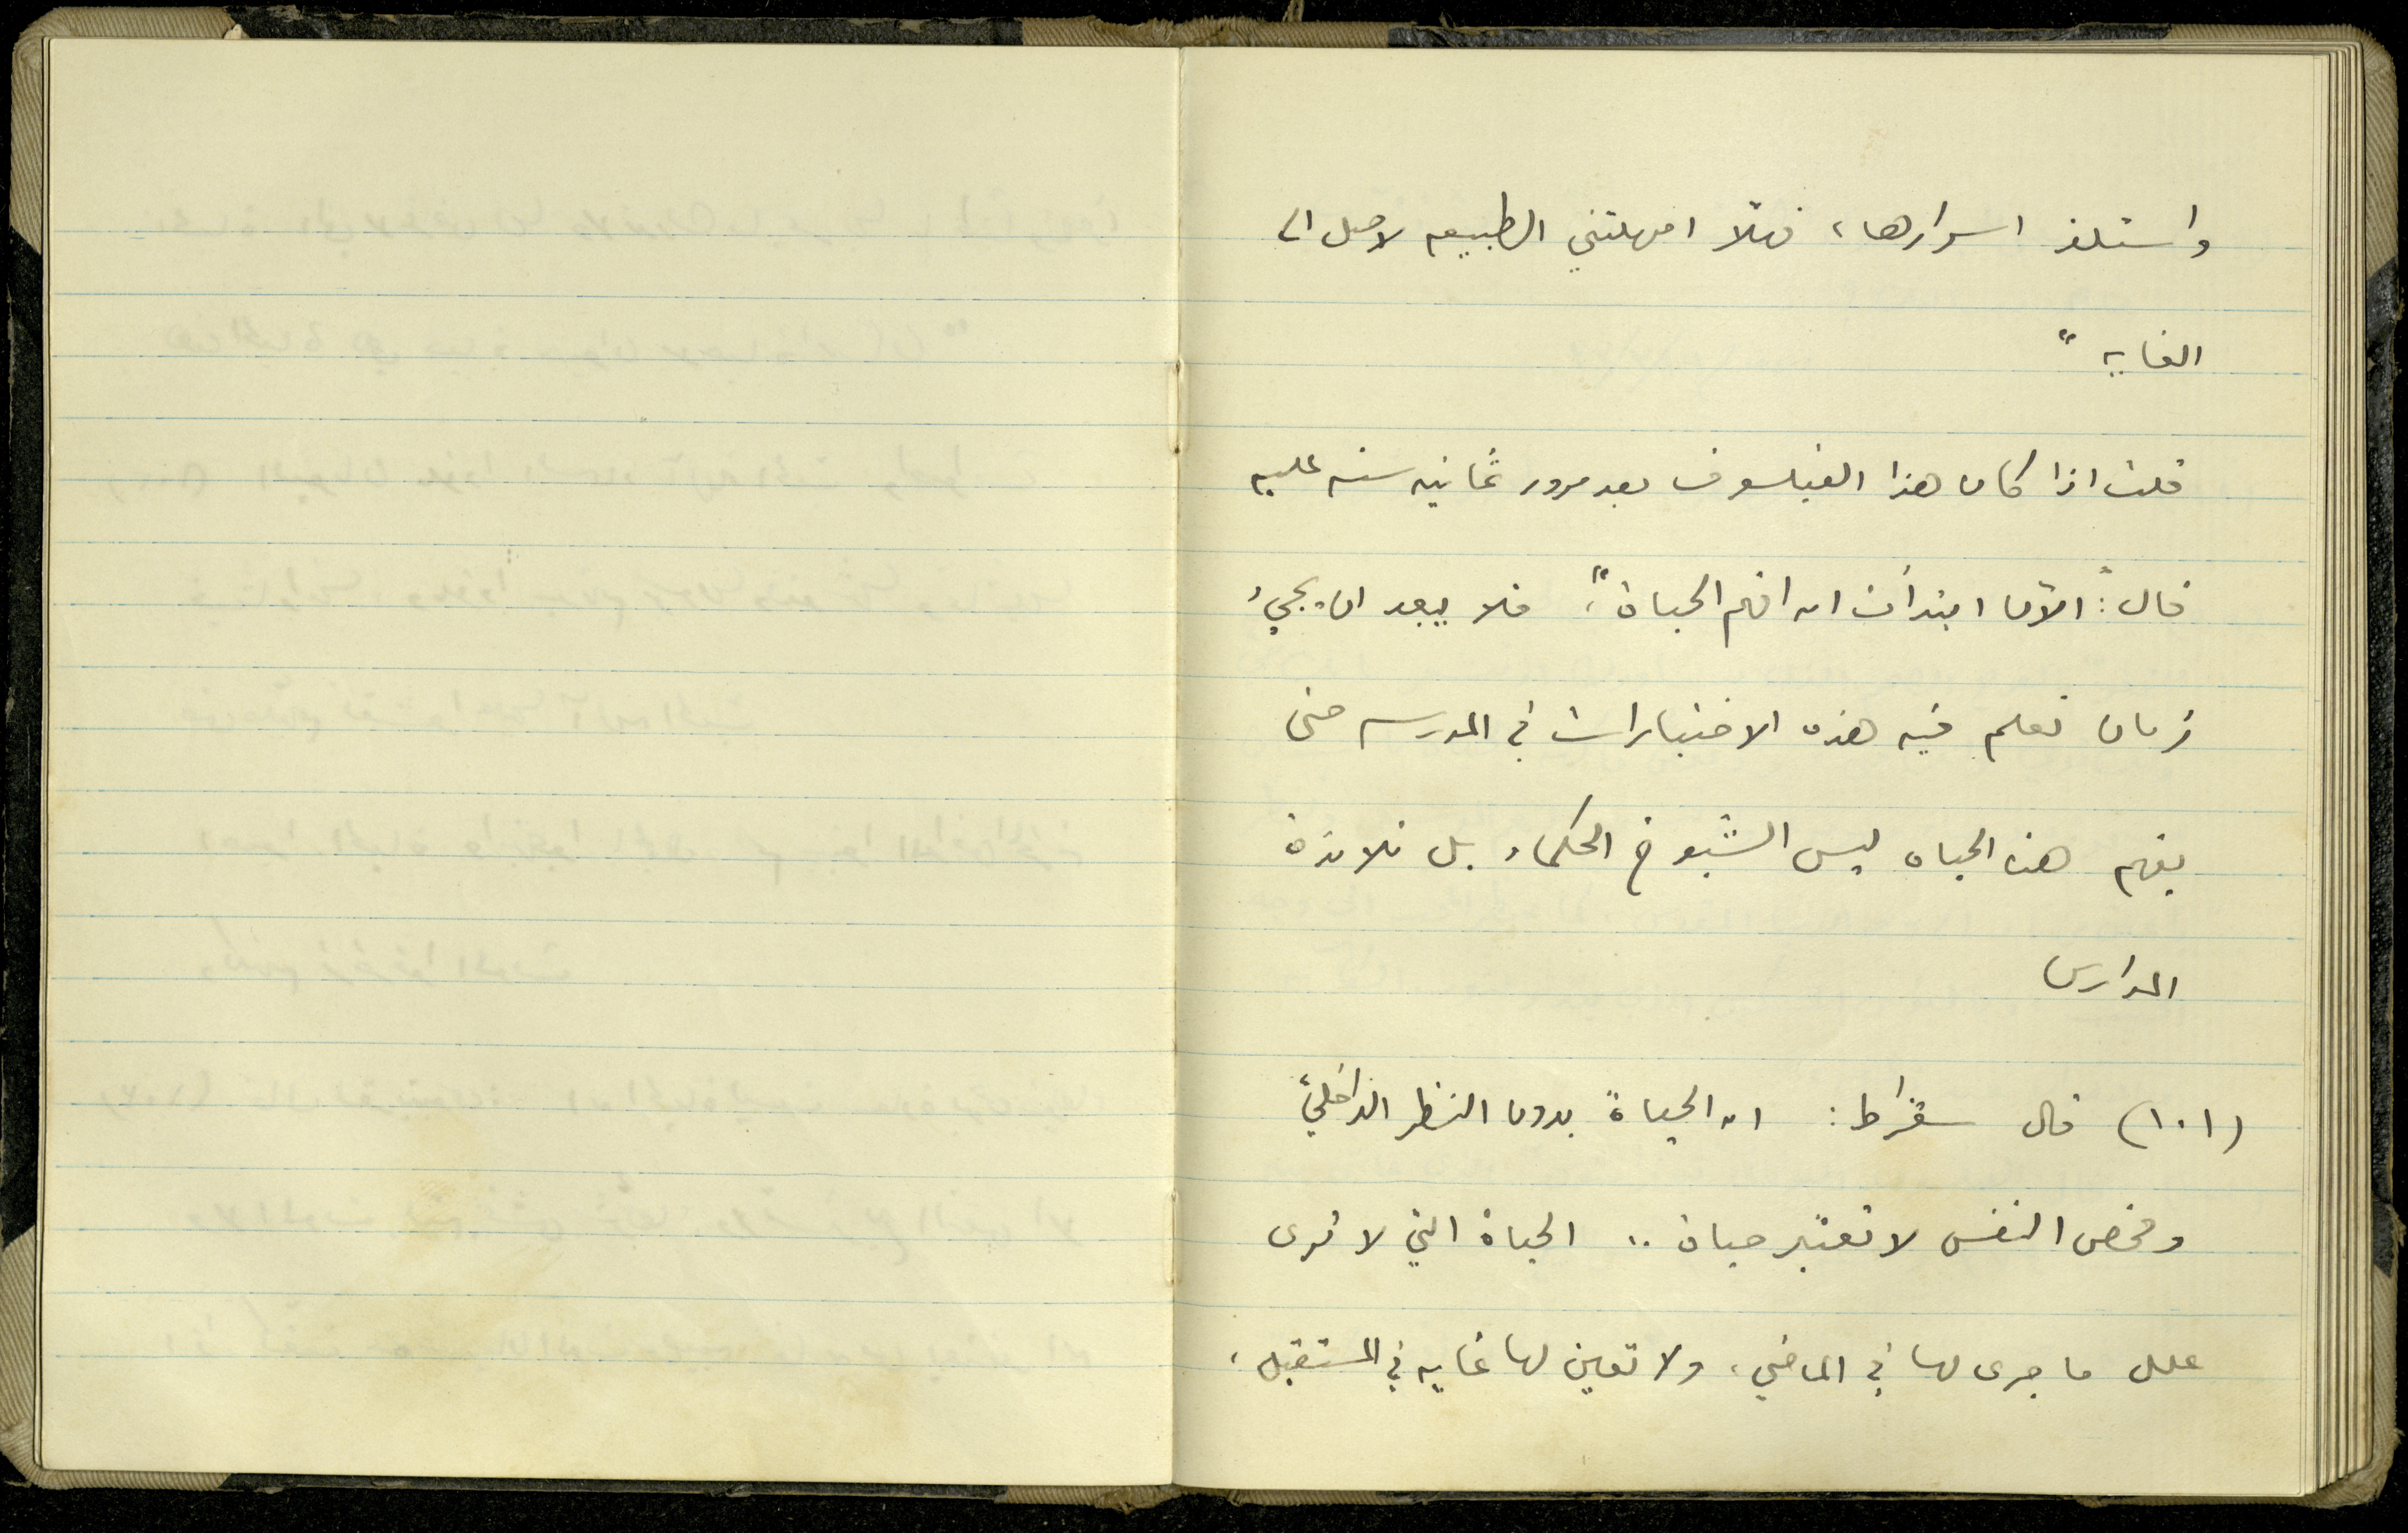 واستلذ اسرارها، فهلّا امهلتني الطبيعه لاصل الى
الغايه"
قلت اذا كان هذا الفيلسوف بعد مرور ثمانيه سنه عليه
قال: "الآن ابتدأت ان افهم الحياة"، فلا يبعد ان يجيء
زمان نعلم فيه هذه الاختبارات في المدرسه حتى
يفهم هذه الحياه ليس الشيوخ الحكماء بل تلامذة
المدارس
(١٠١) قال سقراط: ان الحياة بدون النظر الداخليّ
وفحص النفس لا تعتبر حياة .. الحياة التي لا ترى
علل ما جرى لها في الماضي، ولا تعين لها غايه في المستقبل،